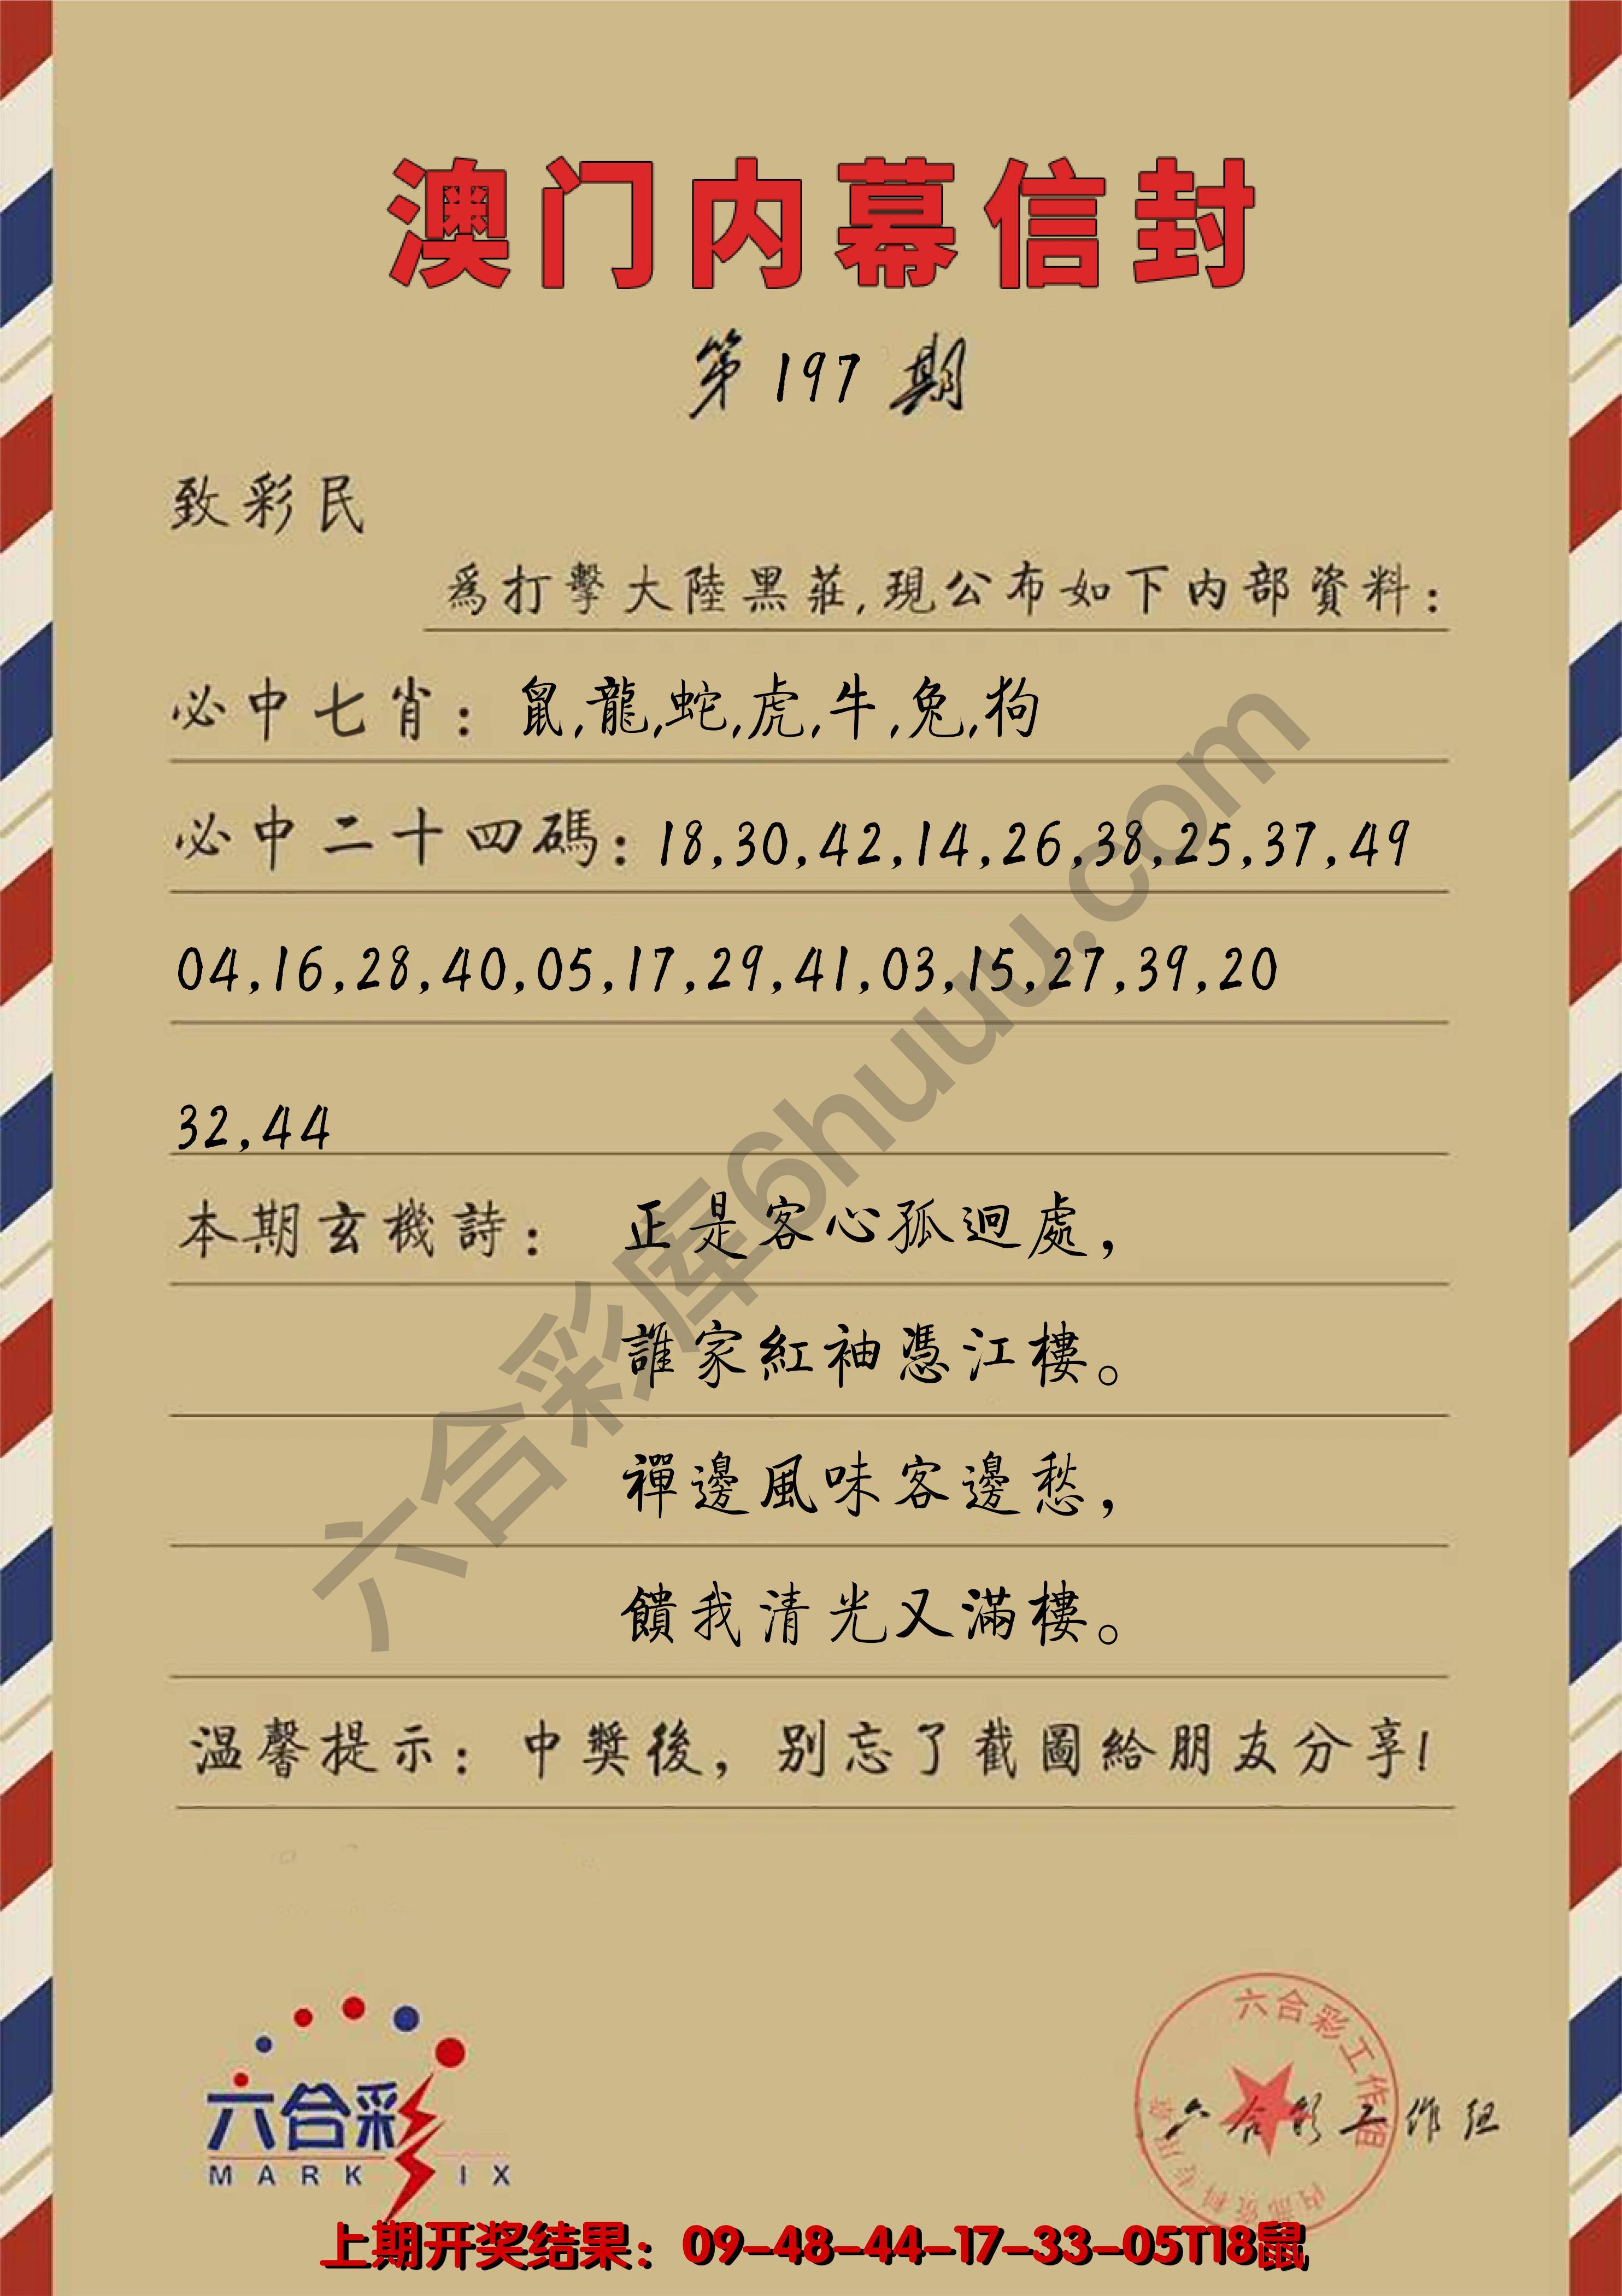 澳门内幕信封
第197期
致彩民
為打擊大陸黑莊,現公布如下内部資料:
必中七肖: 鼠,龍,蛇,虎,牛,兔,狗
必中二十四碼: 18,30,42,14,26,38,25,37,49
04,16,28,40,05,17,29,41,03,15,27,39,20
32,44
本期玄機詩: 正是客心孤迥處,
誰家紅袖憑江樓。
禪邊風味客邊愁,
饋我清光又滿樓。
温馨提示: 中獎後, 别忘了截圖給朋友分享!
六合彩库6huuu.com
六合彩
MARK IX
六合彩工作组
内部资料专用章
六合彩工作组
上期开奖结果: 09-48-44-17-33-05T18鼠